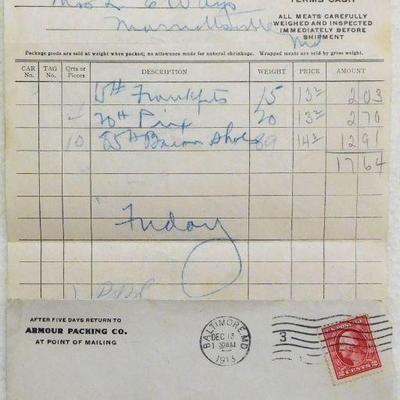 TERMS CASH
ALL MEATS CAREFULLY
WEIGHED AND INSPECTED
IMMEDIATELY BEFORE
SHIPMENT
Marriottsville
Md
Package goods are sold at weight when packed; no allowance made for natural shrinkage. Wrapped meats are sold by gross weight.
CAR No. TAG No. Qrts or Pieces DESCRIPTION WEIGHT PRICE AMOUNT
15# Frankfts 15 13½ 2 03
20# 20 13½ 2 70
10 85# Bacon 89 14½ 12 91
17 64
Friday
AFTER FIVE DAYS RETURN TO
ARMOUR PACKING CO.
AT POINT OF MAILING
BALTIMORE, MD.
DEC 13
1913
3
U.S. POSTAGE
2 CENTS 2